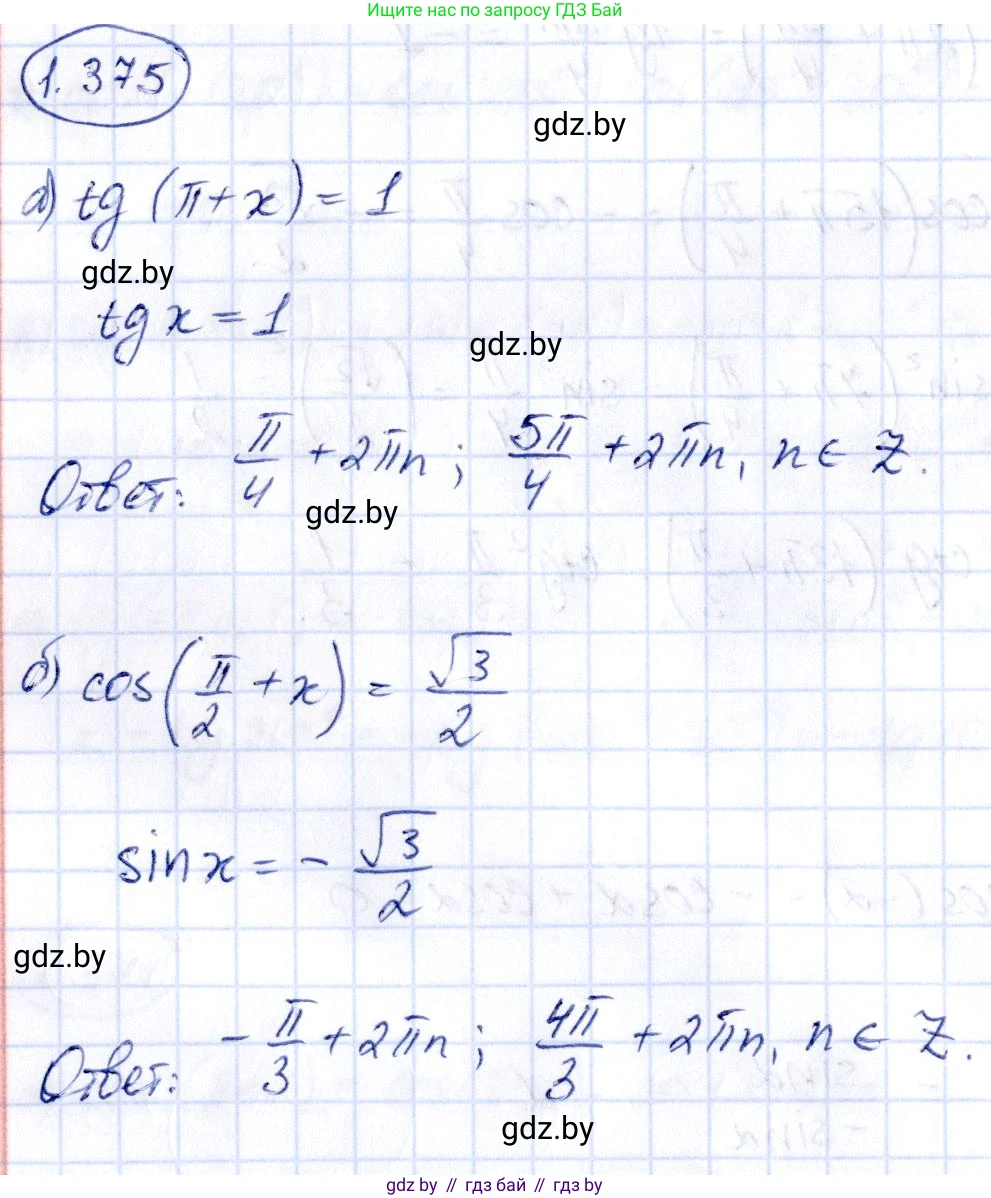 Ищите нас по запросу ГДЗ Бай
1.375
gdz.by
а) tg (π+x) = 1
gdz.by
tg x = 1
gdz.by
Ответ: π/4 + 2πn; 5π/4 + 2πn, n ∈ Z.
gdz.by
б) cos(π/2 + x) = √3/2
sin x = - √3/2
gdz.by
Ответ: - π/3 + 2πn; 4π/3 + 2πn, n ∈ Z.
gdz.by
gdz.by // гдз бай // gdz.by